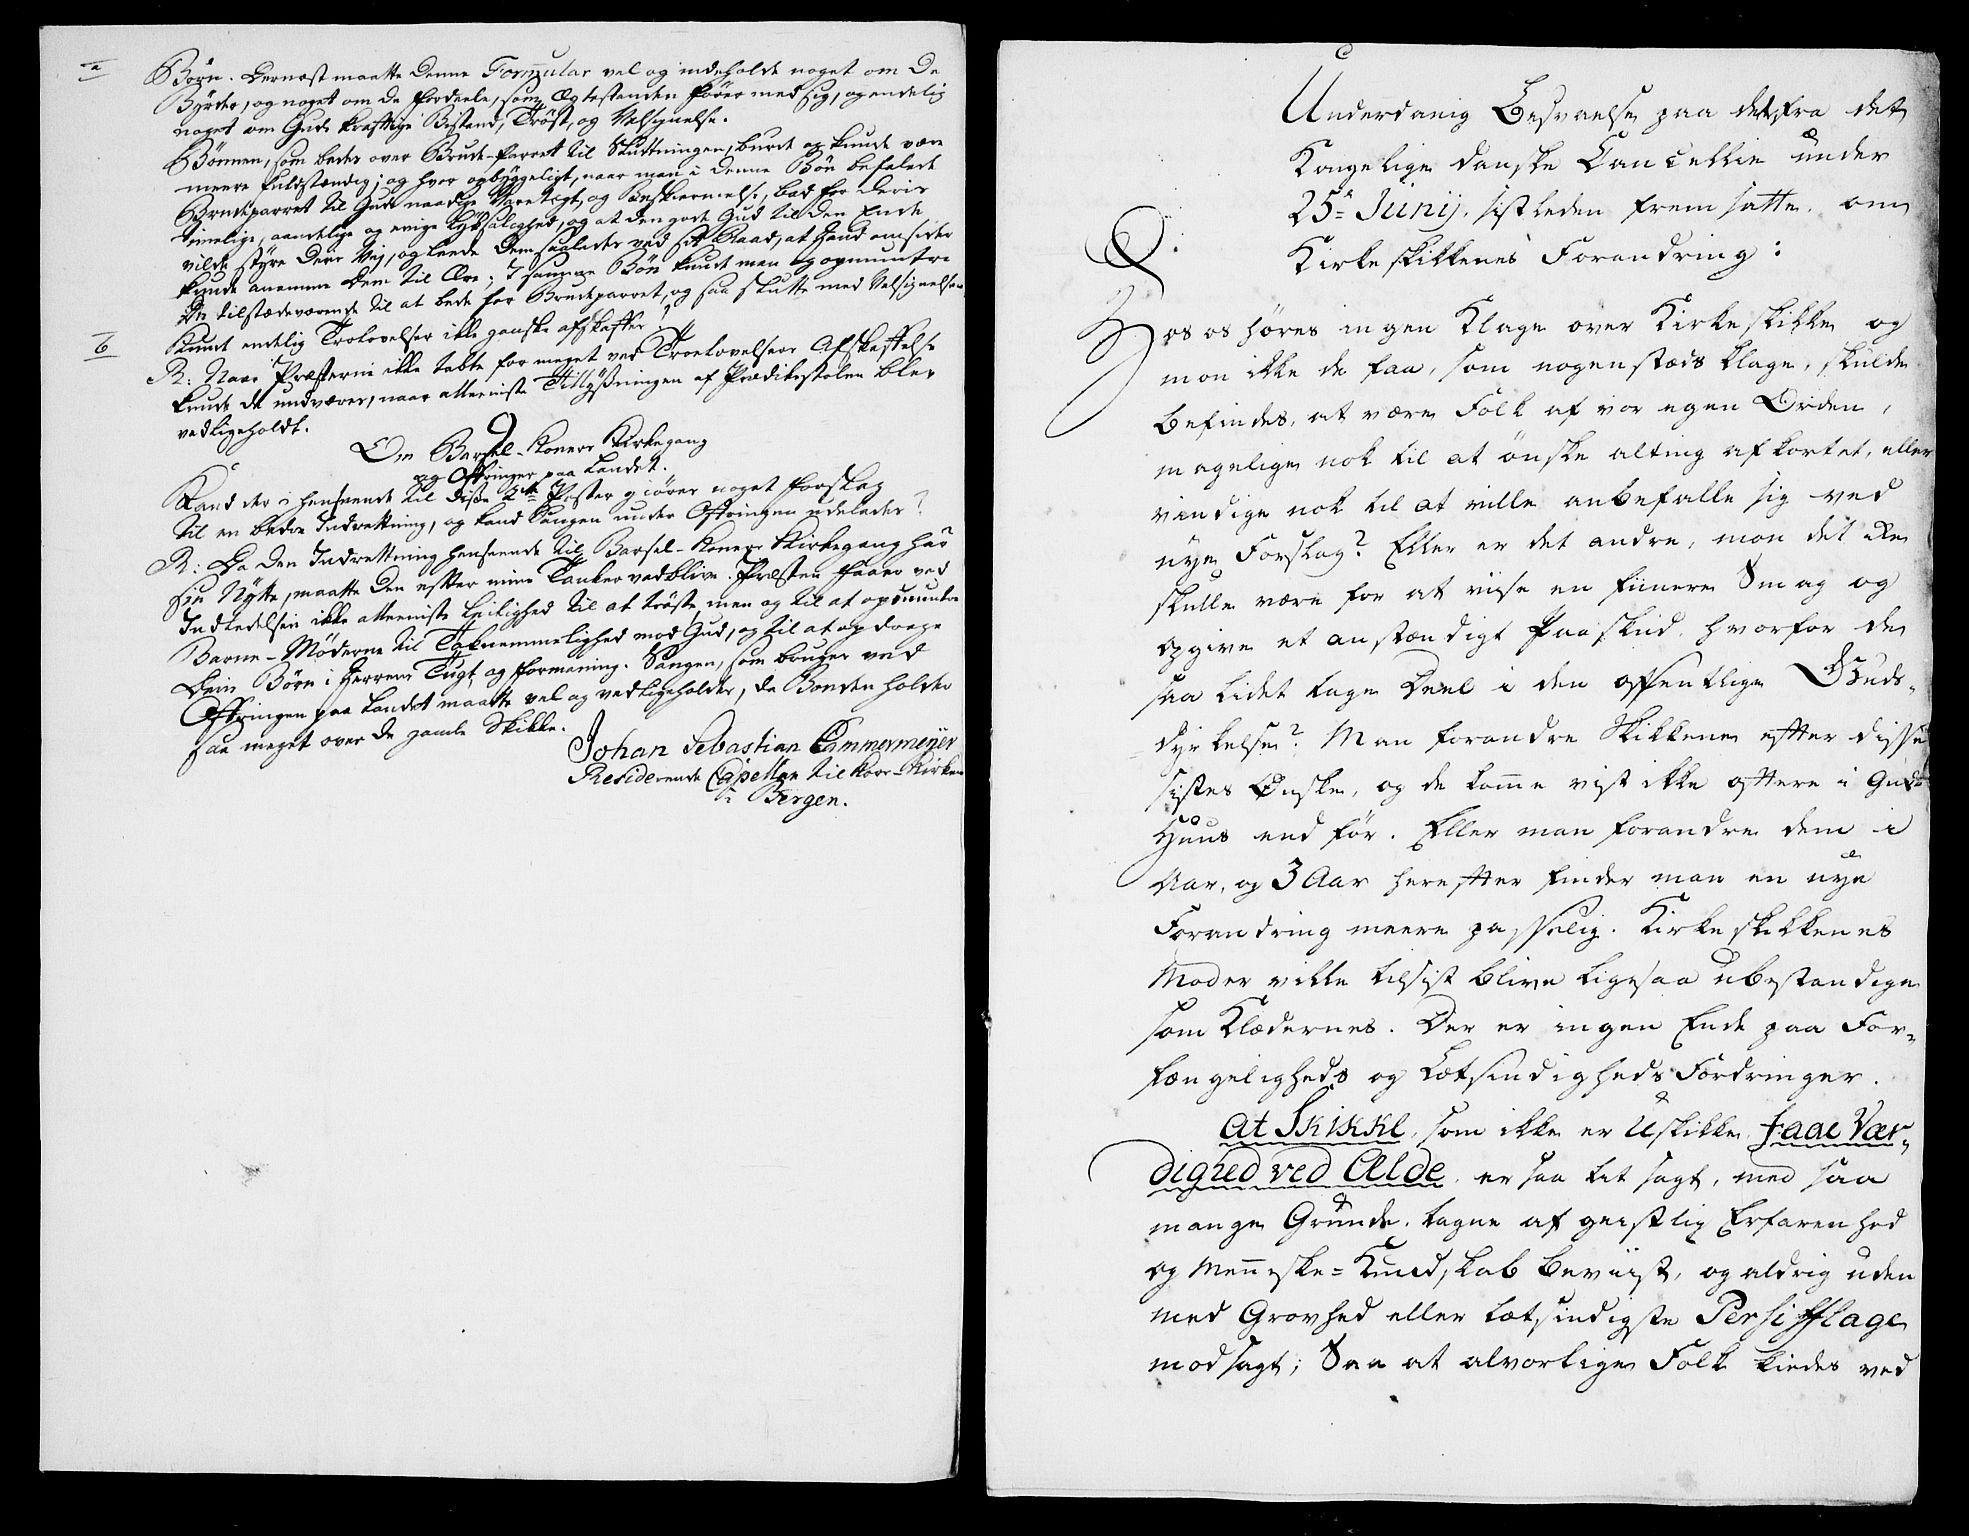 a
Børn. Dernæst maatte denne Formular vel og indeholde noget om De
Byrder, og noget om De Fordeele, som Ægtestanden fører med sig, og endelig
noget om Guds kraftige Bistand, Trøst, og Velsignelse.
Bønnen, som bedes over Brude-Parret til Sluttningen, burde og kunde være
meere fuldstændig; og hvor opbyggeligt, naar man i denne Bøn befalede
Brudeparret til Guds naadige Varetegt, og Beskiermelse, bad for deres
timelige, aandelige og evige Lyksalighed, og at den gode Gud til den Ende
vilde styre deres Vej, og leede dem saaledes ved sit Raad, at Hand omsider
kunde anamme dem til Ære; I samme Bøn kunde man og opmuntre
de tilstædeværende til at bede for Brudeparret, og saa slutte med Velsignelsen
b
Kunde endelig Trolovelser ikke ganske afskaffes?
R: Naar Præsterne ikke tabte for meget ved Troelovelsers Afskaffelse
kunde de undværes, naar alleeniste Tillysningen af Prædikestolen blev
vedligeholdt.
9
Om Barsel-Koners Kirkegang
og Offringer paa Landet.
Kand der i henseende til disse 2de Poster giøres noget Forslag
til en bedre Indrettning, og kand Sangen under Offringen udelades?
R: Da den Indrettning henseende til Barsel-Koners Kirkegang har
sin Nytte, maatte den efter mine Tanker vedblive. Præsten faaer ved
Indledelsen ikke alleeniste Leilighed til at trøste, men og til at opmuntre
Barne-Møderne til Taknemmelighed mod Gud, og til at opdrage
deres Børn i Herrens Tugt og Formaning. Sangen, som bruges ved
Offringen paa Landet maatte vel og vedligeholdes, da Bonden holder
saa meget over de gamle Skikke.
Johan Sebastian Cammermeyer
Residerende Capellan til Kors-Kirken
i Bergen.
Underdanig Besvarelse paa det, fra det
Kongelige danske Cancellie under
25de Junij sistleden fremsatte, om
Kirkeskikkenes Forandring:
Hos os høres ingen Klage over Kirkeskikke og
mon ikke de faa, som nogenstæds klage, skulde
befindes, at være Folk af vor egen Orden,
magelige nok til at ønske alting afkortet, eller
vindige nok til at ville anbefalle sig ved
nye Forslag? Eller er det andre, mon det da
skulle være for at viise en finere Smag og
opgive et anstændigt Paaskud, hvorfor de
saa lidet tage Deel i den offentlige Guds-
dyrkelse? Man forandre Skikkene efter disse
sistes Ønske, og de komme vist ikke oftere i Guds
Huus end før. Eller man forandre dem i
Aar, og 3 Aar herefter finder man en nye
Forandring meere passelig. Kirkeskikkenes
Moder ville tilsist blive ligesaa ubestandige
som Klædernes. Der er ingen Ende paa For-
fængeligheds og Letsindigheds Fordringer.
At Skikke, som ikke er Uskikke, faae Vær-
dighed ved Ælde, er saa tit sagt, med saa
mange Grunde, tagne af geistlig Erfarenhed
og Menneske-Kundskab beviist, og aldrig uden
med Grovhed eller letsindigste Persifflage
modsagt; Saa at alvorlige Folk kiedes ved